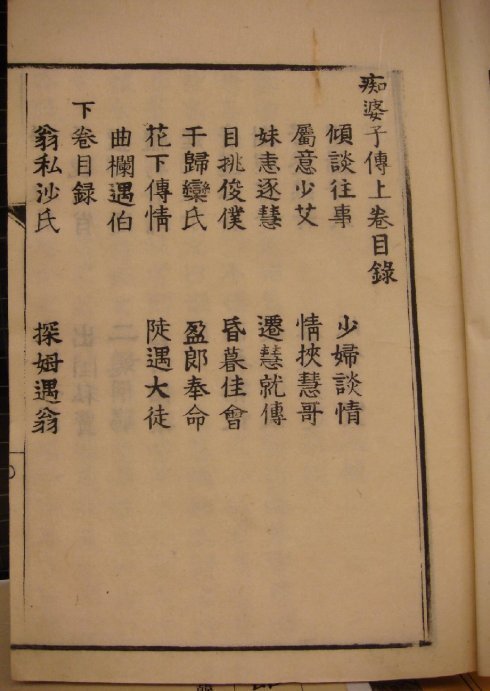 痴婆子傳上卷目錄
傾談往事　少婦談情
屬意少艾　情挾慧哥
妹恚逐慧　遷慧就傳
目挑俊僕　昏暮佳會
于歸欒氏　盈郎奉命
花下傳情　陡遇大徒
曲欄遇伯
下卷目錄
翁私沙氏　探姆遇翁